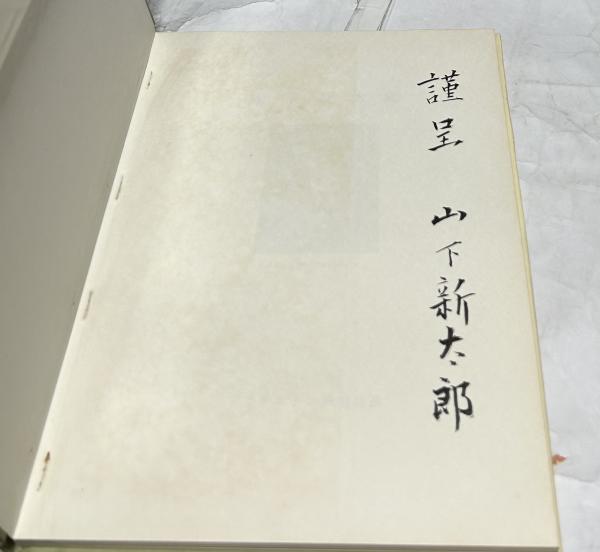 謹呈 山下新太郎